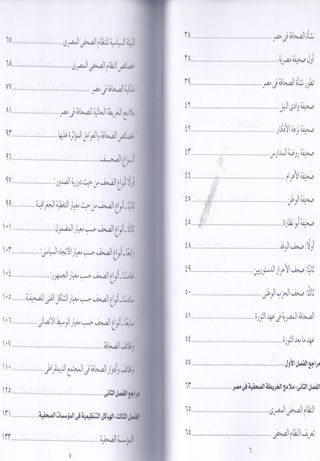 نشأة الصحافة في مصر ٣٨
أول صحيفة مصرية ٣٨
تطور نشأة الصحافة في مصر ٣٩
صحيفة وادى النيل ٤٢
صحيفة نزهة الأفكار ٤٢
صحيفة روضة المدارس ٤٣
صحيفة الأهرام ٤٤
صحيفة الوطن ٤٥
صحيفة أبو نظارة ٤٥
أولًا: صحف الوفد ٤٨
ثانيًا: صحف الأحرار الدستوريين ٤٩
ثالثًا: صحف الحزب الوطني ٥٠
الصحافة المصرية في عهد الثورة ٥١
عهد ما بعد الثورة ٥٤
مراجع الفصل الأول ٥٧
الفصل الثانى: ملامح الخريطة الصحفية فى مصر ٦٣
النظام الصحفى المصرى ٦٥
تعريف النظام الصحفى ٦٥
٦
البيئة السياسية للنظام الصحفى المصرى ٦٧
خصائص النظام الصحفى المصرى ٦٨
ملكية الصحافة فى مصر ٧٧
ملامح الخريطة الحالية للصحافة فى مصر ٨١
خصائص الصحافة والعوامل المؤثرة عليها ٩٣
أنـواع الصحـف ٩٦
أولًا: أنواع الصحف من حيث دورية الصدور: ٩٧
ثانيًا: أنواع الصحف من حيث معيار التغطية الجغرافية ٩٩
ثالثًا: أنواع الصحف حسب معيار المضمون ١٠١
رابعًا: أنواع الصحف حسب معيار الاتجاه السياسى: ١٠٣
خامسًا: أنواع الصحف حسب معيار الجمهور: ١٠٤
سادسًا: أنواع الصحف حسب معيار الشكل الفنى للصحيفة ١٠٥
سابعًا: أنواع الصحف حسب معيار الوسيط الاتصالى ١٠٦
وظائف الصحافة ١٠٧
وظائف وأدوار الصحافة فى المجتمع الديمقراطى ١١٠
مراجع الفصل الثانى ١٢٥
الفصل الثالث: الهياكل التنظيمية فى المؤسسات الصحفية ١٣١
المؤسسة الصحفية ١٣٣
٧